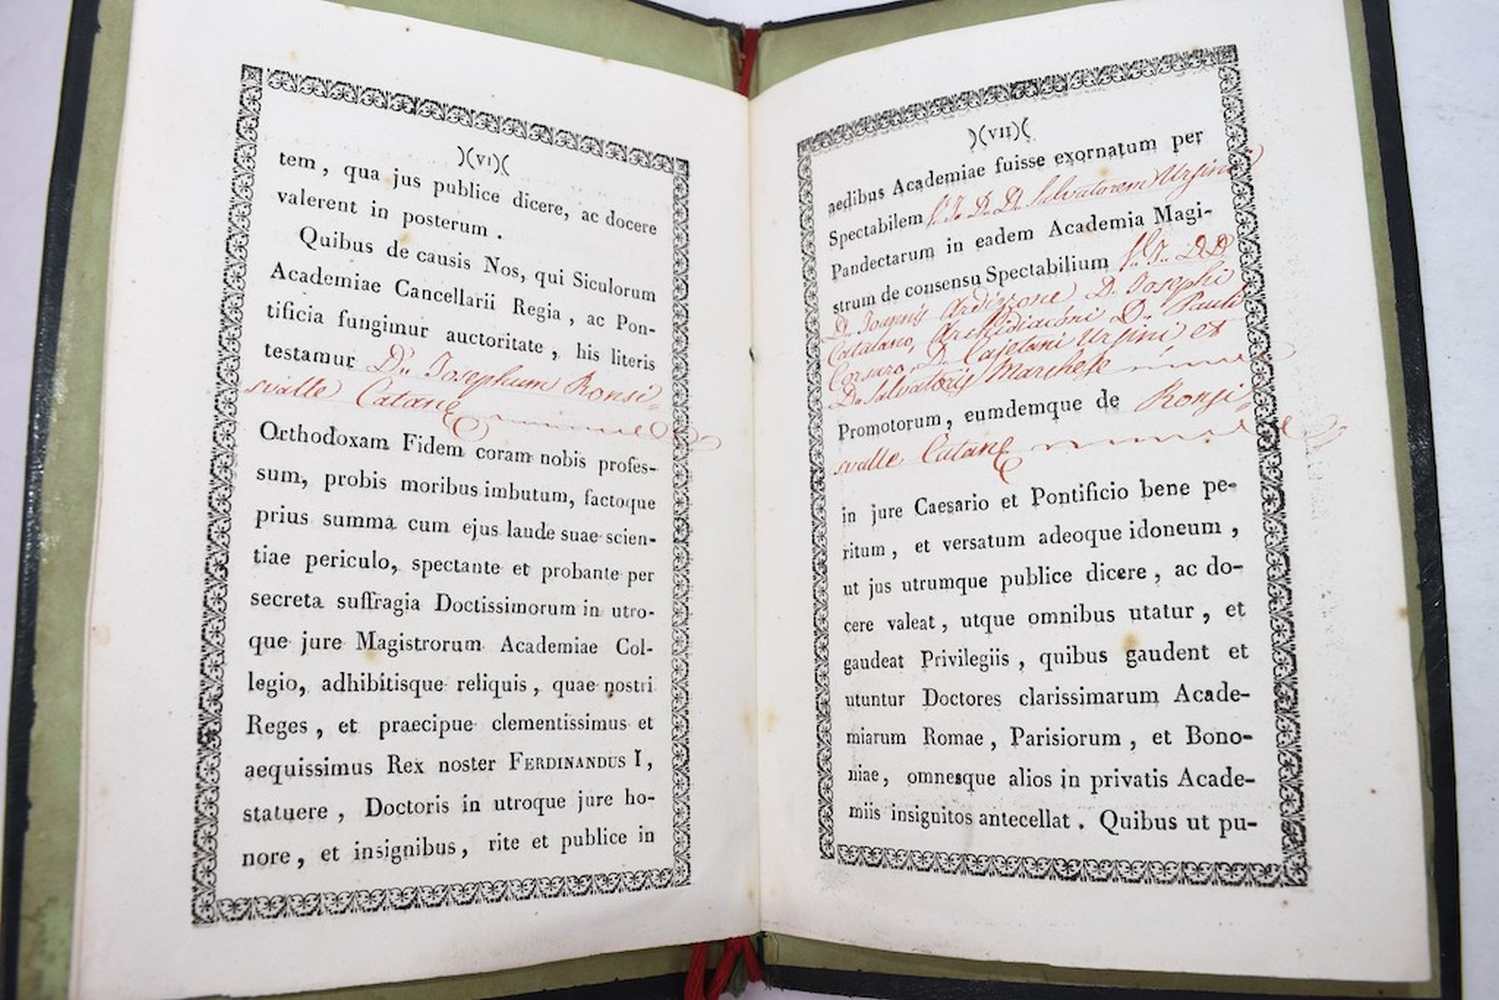 )(VI)(
tem, qua jus publice dicere, ac docere
valerent in posterum.
Quibus de causis Nos, qui Siculorum
Academiae Cancellarii Regia, ac Pon-
tificia fungimur auctoritate, his literis
testamur D.n Josephum Ronsi-
svalle Catane
Orthodoxam Fidem coram nobis profes-
sum, probis moribus imbutum, factoque
prius summa cum ejus laude suae scien-
tiae periculo, spectante et probante per
secreta suffragia Doctissimorum in utro-
que jure Magistrorum Academiae Col-
legio, adhibitisque reliquis, quae nostri
Reges, et praecipue clementissimus et
aequissimus Rex noster FERDINANDUS I,
statuere, Doctoris in utroque jure ho-
nore, et insignibus, rite et publice in
)(VII)(
aedibus Academiae fuisse exornatum per
Spectabilem D. D. Salvatorem Ursini
Pandectarum in eadem Academia Magi-
strum de consensu Spectabilium D D
D. Joannis Ardizzone D. Josephi
Catalano, Archidiaconi D. Pauli
Corsaro, D. Cajetani Ursini et
D. Salvatoris Marchese
Promotorum, eumdemque de Ronsi-
svalle Catane
in jure Caesario et Pontificio bene pe-
ritum, et versatum adeoque idoneum,
ut jus utrumque publice dicere, ac do-
cere valeat, utque omnibus utatur, et
gaudeat Privilegiis, quibus gaudent et
utuntur Doctores clarissimarum Acade-
miarum Romae, Parisiorum, et Bono-
niae, omnesque alios in privatis Acade-
miis insignitos antecellat. Quibus ut pu-